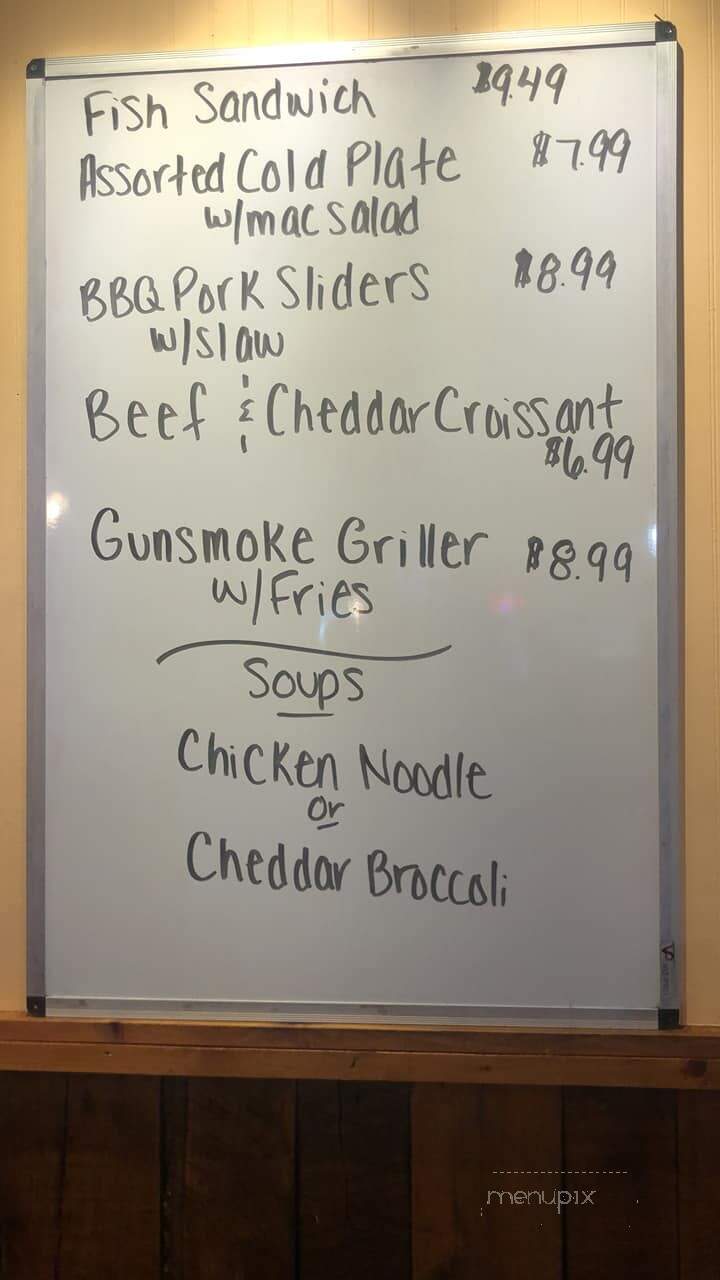 Fish Sandwich $9.49
Assorted Cold Plate $7.99
w/mac salad
BBQ Pork Sliders $8.99
w/slaw
Beef & Cheddar Croissant
$6.99
Gunsmoke Griller $8.99
w/Fries
Soups
Chicken Noodle
or
Cheddar Broccoli
menupix